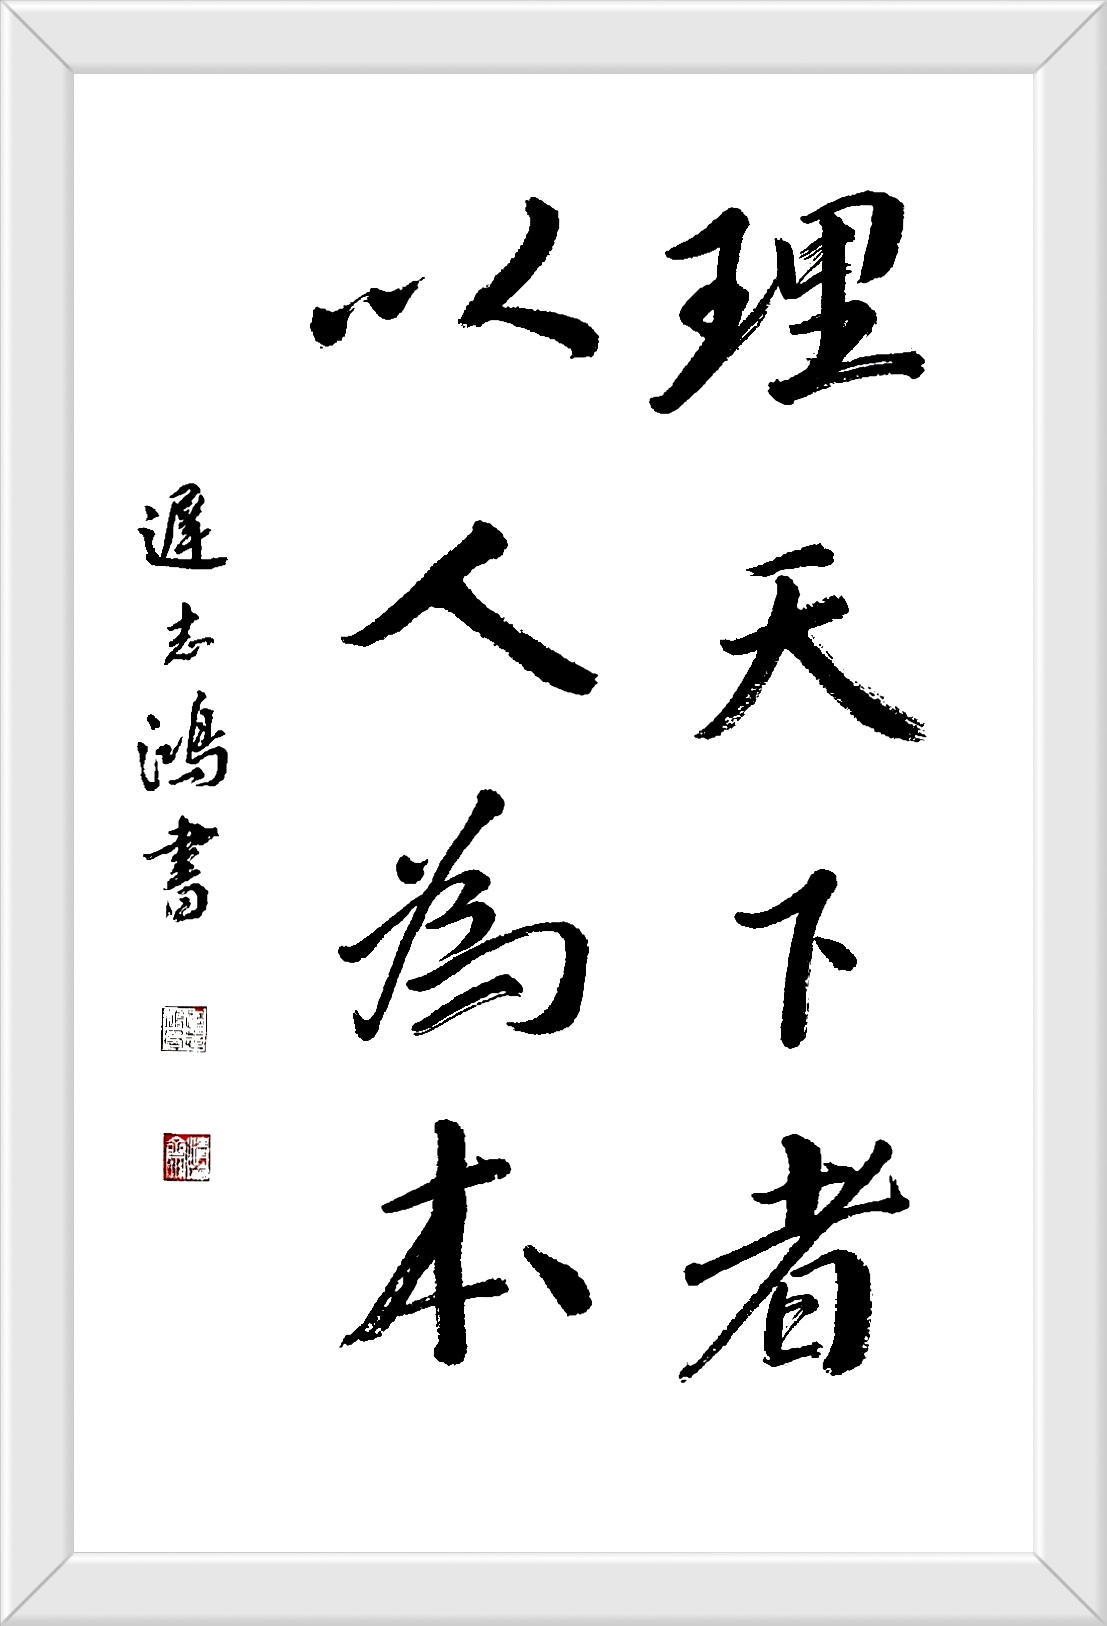 理天下者
以人為本
遲志鴻書